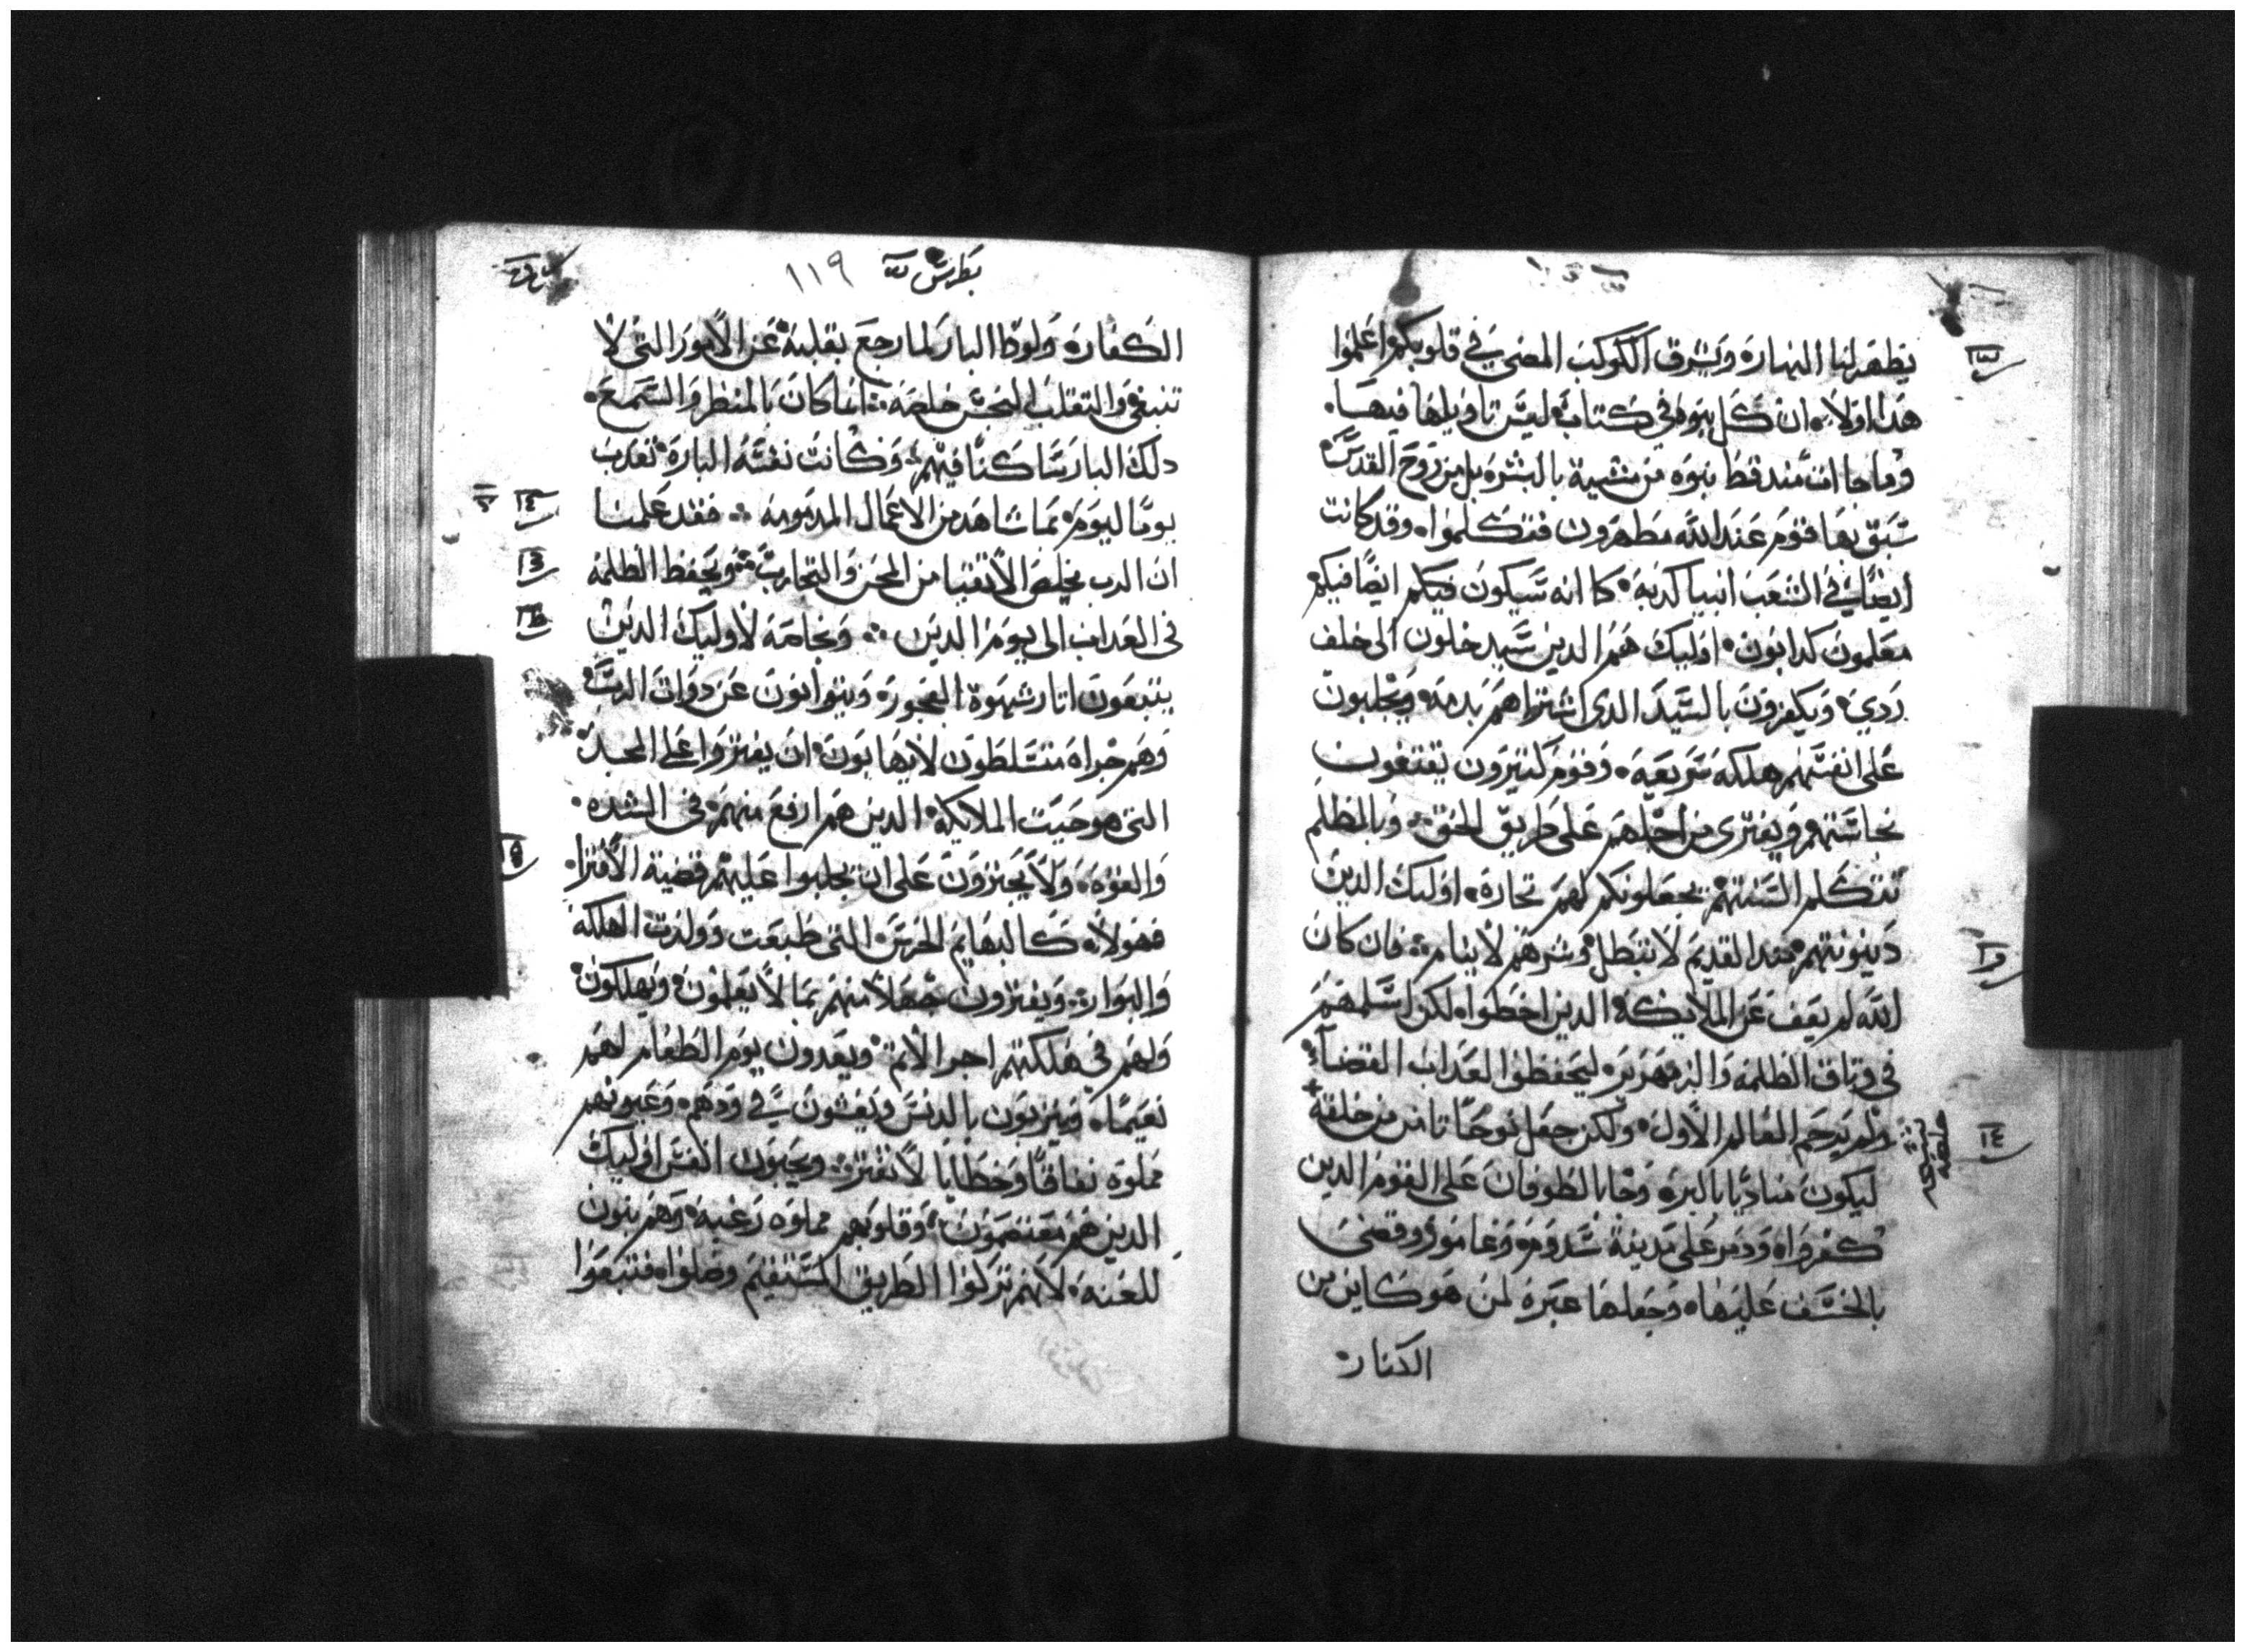 يظهر لنا النهار ويشرق الكوكب المضي في قلوبكم اعلموا
هدا اولا ان كل نبوه في كتاب ليس تاويلها فيها
وما جا انسان مند قط نبوه من مشية بالبشوه بل من روح القدس
سبق بها قوم عند الله مطهرون فتكلموا وقد كانت
ايضا في الشعب انبيا كدبه كما انه سيكون فيكم ايضا فيكم
معلمون كدابون اوليك هم الدين سيدخلون الى خلف
ردي ويكفرون بالسيد الدي اشتراهم بدمه ويجلبون
على انفسهم هلكه سريعه وقوم كتيرون يقتفون
نجاستهم ويفترى من اجلهم على طريق الحق وبالمظلم
تتكلم السنتهم يجعلونكم لهم تجاره اوليك الدين
دينونتهم مند القديم لا تبطل وشرهم لا ينام فان كان
الله لم يعف عن الملايكه الدين اخطوا لكن اسلمهم
في وتاق الظلمه والزمهرير ليحفظوا لعداب القضا
ولم يرحم العالم الاول ولكن جعل نوحا تامن من خلقه
ليكون مناديا بالبره وجا بالطوفان على القوم الدين
كفروا ودمر على مدينة سدوم وغامور وقضى
بالخسف عليها وجعلها عبره لمن هو كاين من
الكفار
بطرس
١١٩
الكفاره ولوطا البار لما رجع بقلبه عن الامور التي لا
تنبغي والتقلب النجس خلصه انما كان بالمنظر والسمع
دلك البار ساكنا فيهم وكانت نفسه الباره تعدب
يوما ليوم بما شاهد من الاعمال المدمومه فقد علمنا
ان الرب يخلص الاتقيا من المحن والتجارب ويحفظ الظلمه
في العداب الى يوم الدين وبخاصه لاوليك الدين
يتبعون اتار شهوة الفجوره ويتوانون عن دوات الرب
وهم جراه متسلطون لا يهابون ان يفتروا على المجد
التي هو حيت الملايكه الدين هم ارفع منهم في الشده
والقوه ولا يجترون على ان يجلبوا عليهم قضية الافترا
فهولاء كالبهايم الخرس التي طبعت وولدت الهلكه
والبوار ويفترون جهلا منهم بما لا يعلمون ويهلكون
ولهم في هلكتهم اجر الاتم ويعدون يوم الطعام لهم
نعيما ويتزيون بالدنس ويفشون في ودهم وعيونهم
مملوه نفاقا وخطايا لا تفتر ويحبون انفس اوليك
الدين هم معتصمون وقلوبهم مملوه رغبه وهم بنون
للعنه لانهم تركوا الطريق المستقيم وضلوا فتبعوا